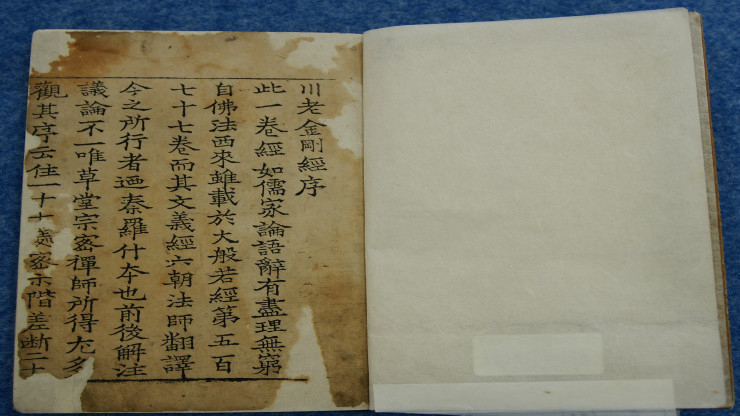 川老金剛經序
此一卷經如儒家論語辭有盡理無窮
自佛法西來雖載於大般若經第五百
七十七卷而其文義經六朝法師翻譯
今之所行者迺秦羅什夲也前後解注
議論不一唯草堂宗密禪師所得尤多
觀其序云住一十 密示階差斷二十